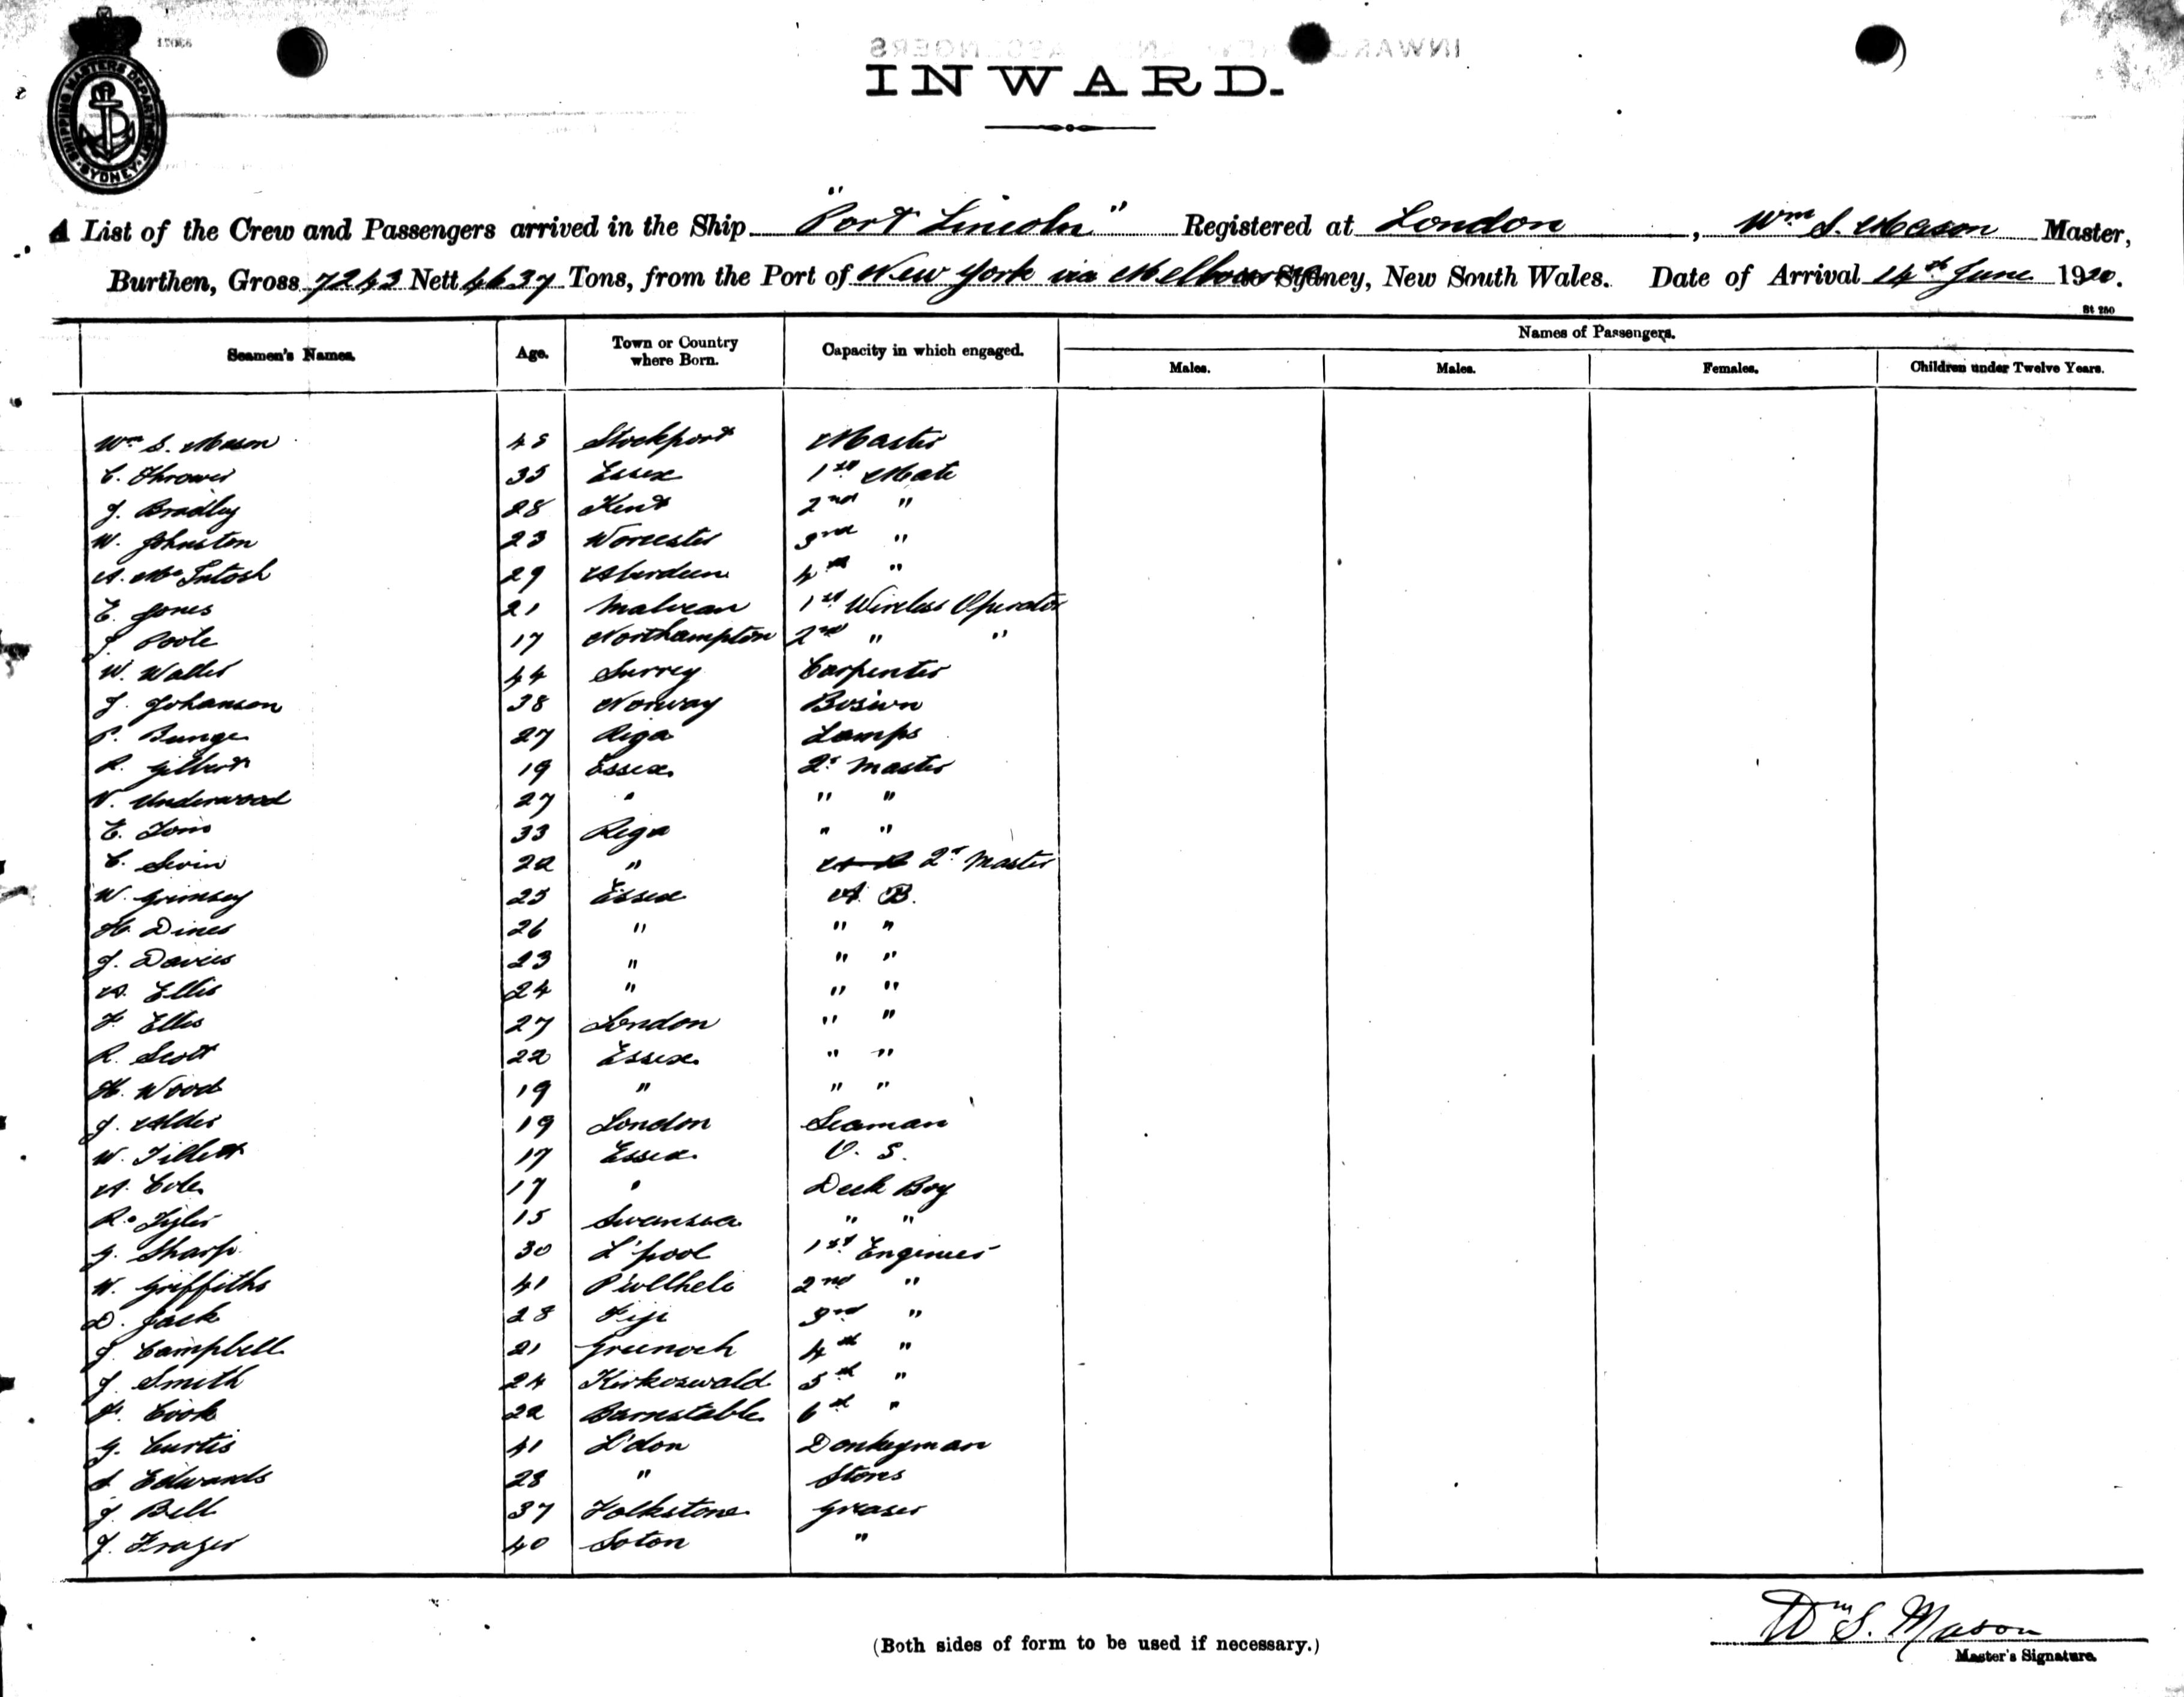 SHIPPING MASTERS DEPARTMENT SYDNEY
INWARD.
A List of the Crew and Passengers arrived in the Ship "Port Lincoln" Registered at London, Wm S. Mason Master,
Burthen, Gross 7243 Nett 4637 Tons, from the Port of New York via Sydney, New South Wales. Date of Arrival 14th June 1920.
St 250
Names of Passengers.
Seamen's Names. Age. Town or Country where Born. Capacity in which engaged. Males. Males. Females. Children under Twelve Years.
Wm S. Mason 48 Stockport Master
C. Thrower 35 Essex 1st Mate
J. Bradley 28 Kent 2nd "
W. Johnston 23 Worcester 3rd "
A. McIntosh 29 Aberdeen 4th "
E. Jones 21 1st Wireless Operator
J. Poole 17 Northampton 2nd " "
W. Waller 44 Surrey Carpenter
J. Johanson 38 Norway Bosiwn
P. Bunge 27 Riga Lamps
R. Gilbert 19 Essex 2r Master
V. Underwood 27 " " "
E. 33 Riga " "
C. 22 " 2r Master
W. Grimsey 25 Essex A. B.
H. Dines 26 " " "
J. Davies 23 " " "
A. Ellis 24 " " "
F. Ellis 27 London " "
R. Scott 22 Essex " "
H. Wood 19 " " "
J. Alder 19 London Seaman
W. Tillett 17 Essex O. S.
A. Cole 17 " Deck Boy
R. 15 Swansea " "
G. Sharp 30 L'pool 1st Engineer
W. Griffiths 41 Pwllheli 2nd "
D. Jack 28 Fiji 3rd "
J. Campbell 21 Greenock 4th "
J. Smith 24 Kirkoswald 5th "
F. Cook 22 Barnstable 6th "
G. Curtis 41 L'don Donkeyman
S. Edwards 28 " Stores
J. Bell 37 Folkstone Greaser
J. Frazer 40 Soton "
(Both sides of form to be used if necessary.)
Wm S. Mason
Master's Signature.